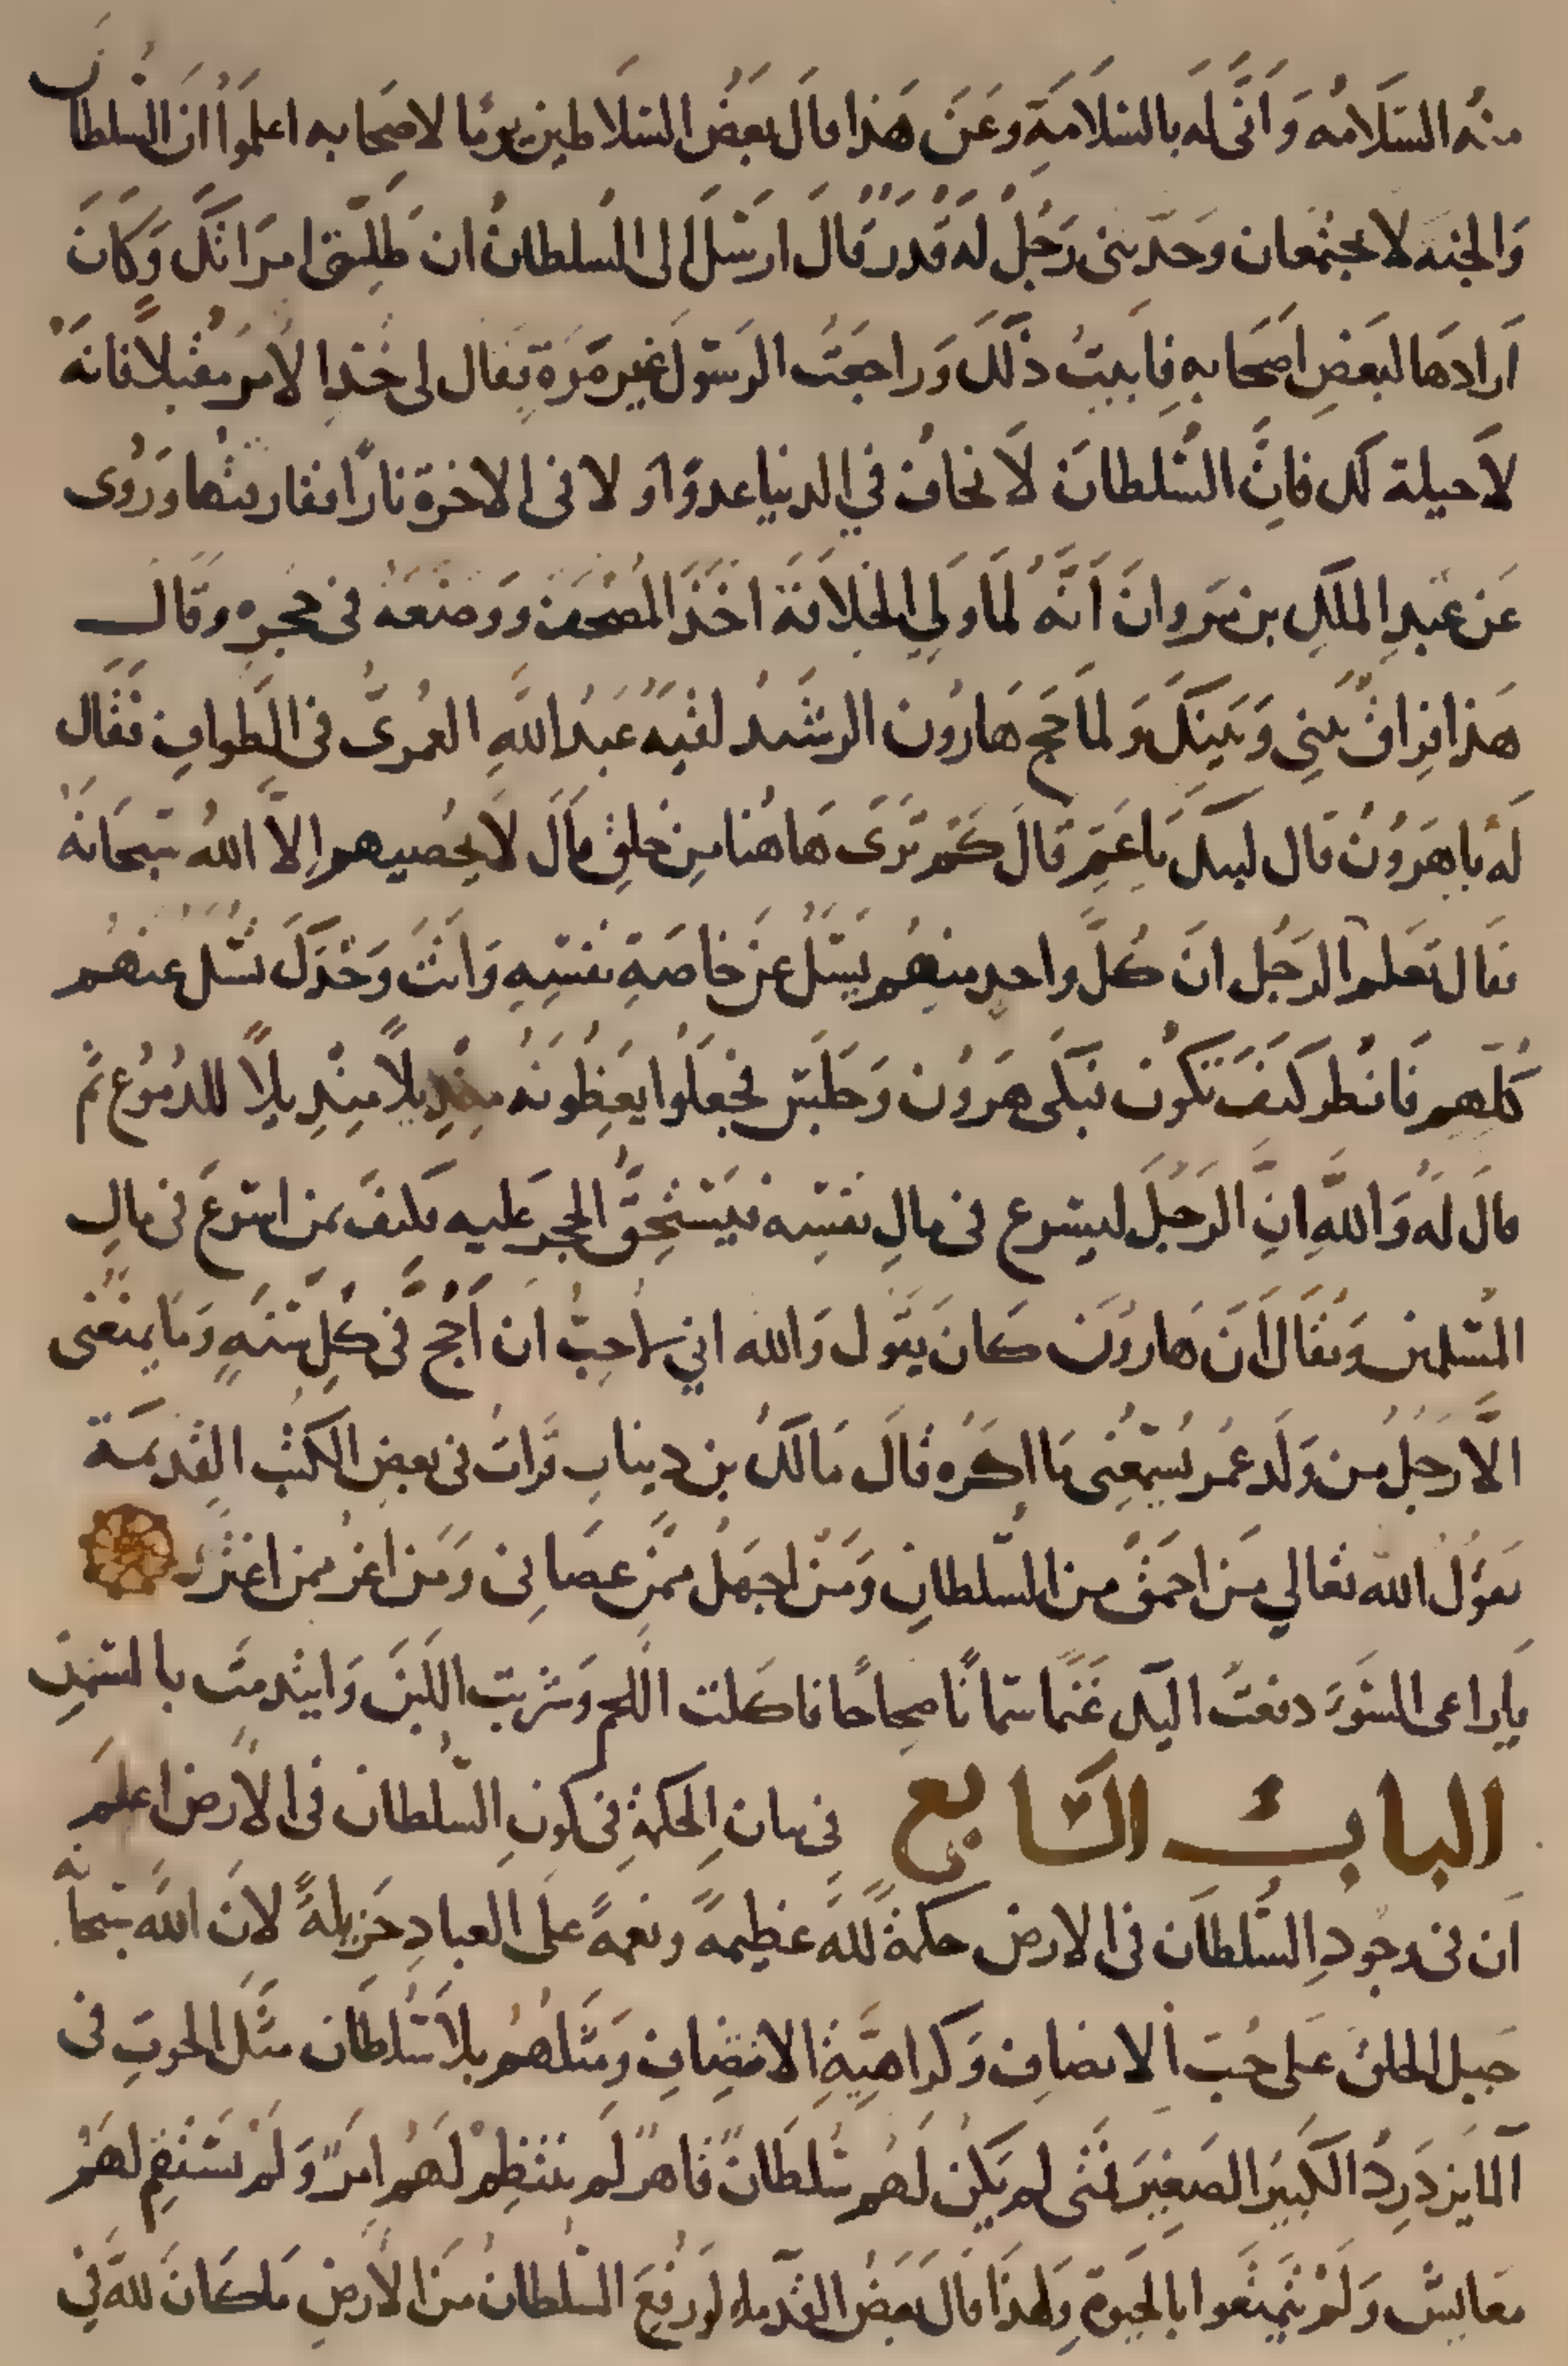 منه السلامه وَاَنَّى له بالسلامَةِ وعَنَ هَذا قال بعَضُ السَلاطين يومًا لاصَحابه اعلمَوُا انَ السُلطان
وَالجنه لا يجتمعان وحَدَثنى رَجُلٌ له قَدرٌ قَالَ ارسَلَ الى السُلطانُ ان طَلِق امرَاتكَ وَكانَ
اَرادَها لبعَضِ اصَحابهِ فابيتُ ذلكَ وَراجعَتُ الرسَول غير مَرَةٍ فقال لى خُذِ الامرَ مقبلاً فانهَ
لاَ حيلة لك فاِنَّ السُلطانَ لاَ يخافُ في الدنيا عدوًا وَ لا فى الاخرة نارًا ففارقتها وَرُوى
عَن عَبدِ الملكِ بن مَروانَ اَنَّهُ لمَا وَلِى الخلافَةَ اخَذَ المُصحفَ ووضعَهُ فى حجِرِه وَقال
هَذا فراقُ بيَنِى وَبَينكَ وَلما حَج هَارُون الرشَيدُ لقيَهُ عَبدُ اللّهِ العُمرىُّ فى الطوافِ فقَال
لَهُ ياهرَوُنُ قال لبيك يَاعَمِ قالَ كَم تَرَى هَاهُنا مِن خلقٍ قالَ لاَ يُحصيهم اِلاَّ اللّهُ سبحَانهُ
فقال تعَلم الرَجُل انَ كُلَّ واحدٍ منِهُم يَسَلُ عَن خاصَةِ نفسِهِ وَانتَ وَحَدَكَ تُسَل عنهُم
كُلِّهِم فَانظُر كيفَ تَكُون فبَكى هرَوُن وَجَلسَ فجعَلُوا يعَطُونهُ منديلاً منديلاً للدُموُع ثم
قالَ لَهُ وَاللّهِ اِنَّ الرَجُلَ ليسَرع فى مالِ نفسِه فيَستحِقُّ الحجر عَليه فكيفَ بمن اسَرعَ فى مالِ
المسُلمين وَيقُالُ اَنَ هَارُونَ كانَ يقَوُل وَالله انى لاحِبُ ان اَحُجَّ فى كلِ سَنهٍ وَمَا يمنعُنى
الاَّ رَجُلٌ من وَلَد عُمَر يُسمِعُنِى مَا اكرَه قالَ مَالكُ بن دينارٍ قرَاتُ فى بعضِ الكتُب القديمَة
يقوُلُ الله تعَالي مَن احمقُ من السُلطانِ وَمَن اجهَلُ ممَن عصَانى وَمَن اعزُ ممن اعتزَّ
يَا راعى السَوءِ دفعَتُ اليَك غَنمًا سمانًا صِحاحًا فاكَلت اللحم وَشربت اللبنَ وَايتدمَت بالسَمنِ
البابُ السَّابع فى بيان الحِكمةِ فى كونِ السُّلطان فى الارَض اعلمَ
اَن فى وجوُدِ السُّلطاَن فى الارض حكمةً للّه عظيمهً ونعمهً على العبادِ جَزيلهً لانَ اللّه سبحانه
جَبل الخلقَ عَلى حُبَ الانصافِ وَكراهيَّةِ الانتصَافِ وَمَثلهُم بلاَ سُلطان مثَل الحوتِ فى
آلماَ يزدَردُ الكَبيرُ الصَغيرَ فمَتى لم يَكن لَهُم سُلطَانٌ قاهرٌ لَم يَنتظِم لَهُم امَرٌ وَلَم يَستقِم لهَمُ
معَايش وَلَم يَتمتَعوا بالحيَوةِ وَلهذا قالَ بعَضُ القُدَماءِ لوَ رُفعَ السُلطانُ منَ الارَضِ مَا كَانَ للهِ فى